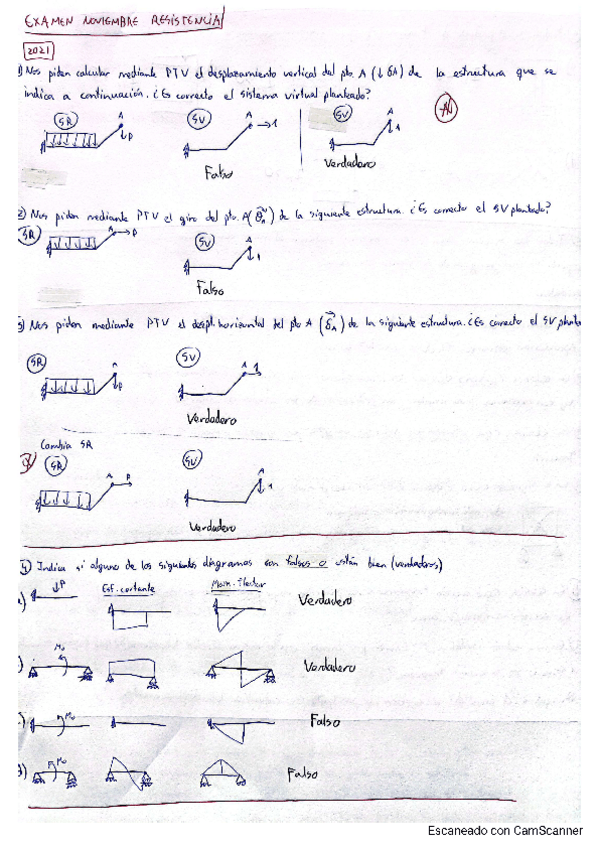 EXAMEN NOVIEMBRE RESISTENCIA
2021
1) Nos piden calcular mediante PTV el desplazamiento vertical del pto. A (↓ δA) de la estructura que se
indica a continuación. ¿Es correcto el sistema virtual planteado?
SR A P SV A 1 SV A 1
Falso Verdadero
2) Nos piden mediante PTV el giro del pto. A (θA) de la siguiente estructura. ¿Es correcto el SV planteado?
SR A P SV A 1
Falso
3) Nos piden mediante PTV el despl. horizontal del pto A (δA) de la siguiente estructura. ¿Es correcto el SV
SR A P SV A 1
Verdadero
Cambia SR
SR A P SV A 1
Verdadero
4) Indica si alguno de los siguientes diagramas son falsos o están bien (verdaderos)
P Esf. cortante Mom. flector
Verdadero
M₀ Verdadero
M₀ Falso
M₀ Falso
Escaneado con CamScanner